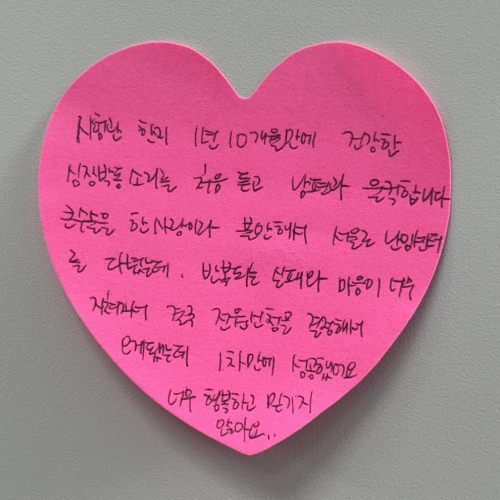 시험관 한지 1년 10개월만에 건강한
심장박동소리를 처음 듣고 남편과 울컥합니다
큰수술을 한사람이라 불안해서 서울로 난임센터
를 다녔는데, 반복되는 실패와 마음이 너무
지쳐가서 결국 전원신청을 결정해서
오게됐는데 1차만에 성공했어요
너무 행복하고 믿기지
않아요..